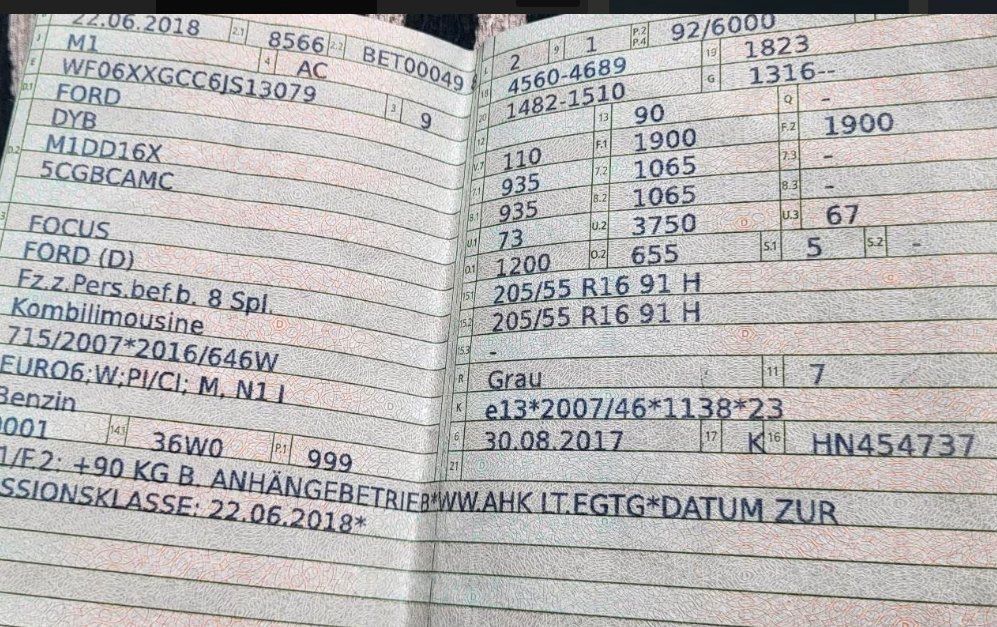 22.06.2018 2.1 8566 2.2 BET00049
J M1 4 AC
E WF06XXGCC6JS13079 3 9
D.1 FORD
DYB
D.2 M1DD16X
5CGBCAMC
FOCUS
FORD (D)
Fz.z.Pers.bef.b. 8 Spl.
Kombilimousine
715/2007*2016/646W
EURO6;W;PI/CI; M, N1 I
Benzin
0001 14.1 36W0 P.1 999
1/F.2: +90 KG B. ANHÄNGEBETRIEB*WW.AHK LT.EGTG*DATUM ZUR
SSIONSKLASSE: 22.06.2018*
L 2 9 1 P.2 P.4 92/6000
18 4560-4689 19 1823
20 1482-1510 G 1316--
12 - 13 90 Q -
V.7 110 F.1 1900 F.2 1900
7.1 935 7.2 1065 7.3 -
8.1 935 8.2 1065 8.3 -
U.1 73 U.2 3750 U.3 67
O.1 1200 O.2 655 S.1 5 S.2 -
15.1 205/55 R16 91 H
15.2 205/55 R16 91 H
15.3 -
R Grau 11 7
K e13*2007/46*1138*23
6 30.08.2017 17 K 16 HN454737
21